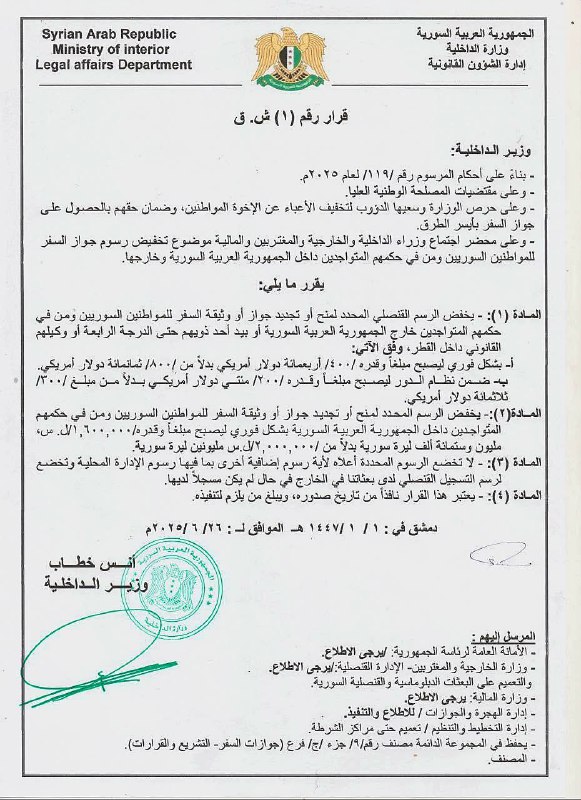 Syrian Arab Republic
Ministry of interior
Legal affairs Department
الجمهورية العربية السورية
وزارة الداخلية
إدارة الشؤون القانونية
قرار رقم (١) ش. ق
وزير الـداخليـة:
- بناءً على أحكام المرسوم رقم /١١٩/ لعام ٢٠٢٥م.
- وعلى مقتضيات المصلحة الوطنية العليا.
- وعلى حرص الوزارة وسعيها الدؤوب لتخفيف الأعباء عن الإخوة المواطنين، وضمان حقهم بالحصول على
جواز السفر بأيسر الطرق.
- وعلى محضر اجتماع وزراء الداخلية والخارجية والمغتربين والمالية موضوع تخفيض رسوم جواز السفر
للمواطنين السوريين ومن في حكمهم المتواجدين داخل الجمهورية العربية السورية وخارجها.
يقرر ما يلي:
المادة (١): - يخفض الرسم القنصلي المحدد لمنح أو تجديد جواز أو وثيقة السفر للمواطنين السوريين ومن في
حكمهم المتواجدين خارج الجمهورية العربية السورية أو بيد أحد ذويهم حتى الدرجة الرابعة أو وكيلهم
القانوني داخل القطر، وفق الآتي:
أ- بشكل فوري ليصبح مبلغاً وقدره /٤٠٠/ أربعمائة دولار أمريكي بدلاً من /٨٠٠/ ثمانمائة دولار أمريكي.
ب- ضمن نظام الدور ليصبح مبلغاً وقدره /٢٠٠/ مئتي دولار أمريكي بدلاً من مبلغ /٣٠٠/
ثلاثمائة دولار أمريكي.
المادة(٢): - يخفض الرسم المحدد لمنح أو تجديد جواز أو وثيقة السفر للمواطنين السوريين ومن في حكمهم
المتواجدين داخل الجمهورية العربية السورية بشكل فوري ليصبح مبلغاً وقدره/١,٦٠٠,٠٠٠/ل.س،
مليون وستمائة ألف ليرة سورية بدلاً من /٢,٠٠٠,٠٠٠/ل.س مليونين ليرة سورية.
المادة (٣): - لا تخضع الرسوم المحددة أعلاه لأية رسوم إضافية أخرى بما فيها رسوم الإدارة المحلية وتخضع
لرسم التسجيل القنصلي لدى بعثاتنا في الخارج في حال لم يكن مسجلاً لديها.
المادة (٤): - يعتبر هذا القرار نافذاً من تاريخ صدوره، ويبلغ من يلزم لتنفيذه.
دمشق في : ١ / ١ /١٤٤٧ هـ الموافق لـ : ٢٦/ ٦ /٢٠٢٥م
أنس خطاب
وزير الـداخلية
المرسل إليهم :
- الأمانة العامة لرئاسة الجمهورية: /يرجى الاطلاع.
- وزارة الخارجية والمغتربين- الإدارة القنصلية:/يرجى الاطلاع.
والتعميم على البعثات الدبلوماسية والقنصلية السورية.
- وزارة المالية: يرجى الاطلاع.
- إدارة الهجرة والجوازات / للاطلاع والتنفيذ.
- إدارة التخطيط والتنظيم / تعميم حتى مراكز الشرطة.
- يحفظ في المجموعة الدائمة مصنف رقم/٩/ جزء /ج/ فرع (جوازات السفر- التشريع والقرارات).
- المصنف.